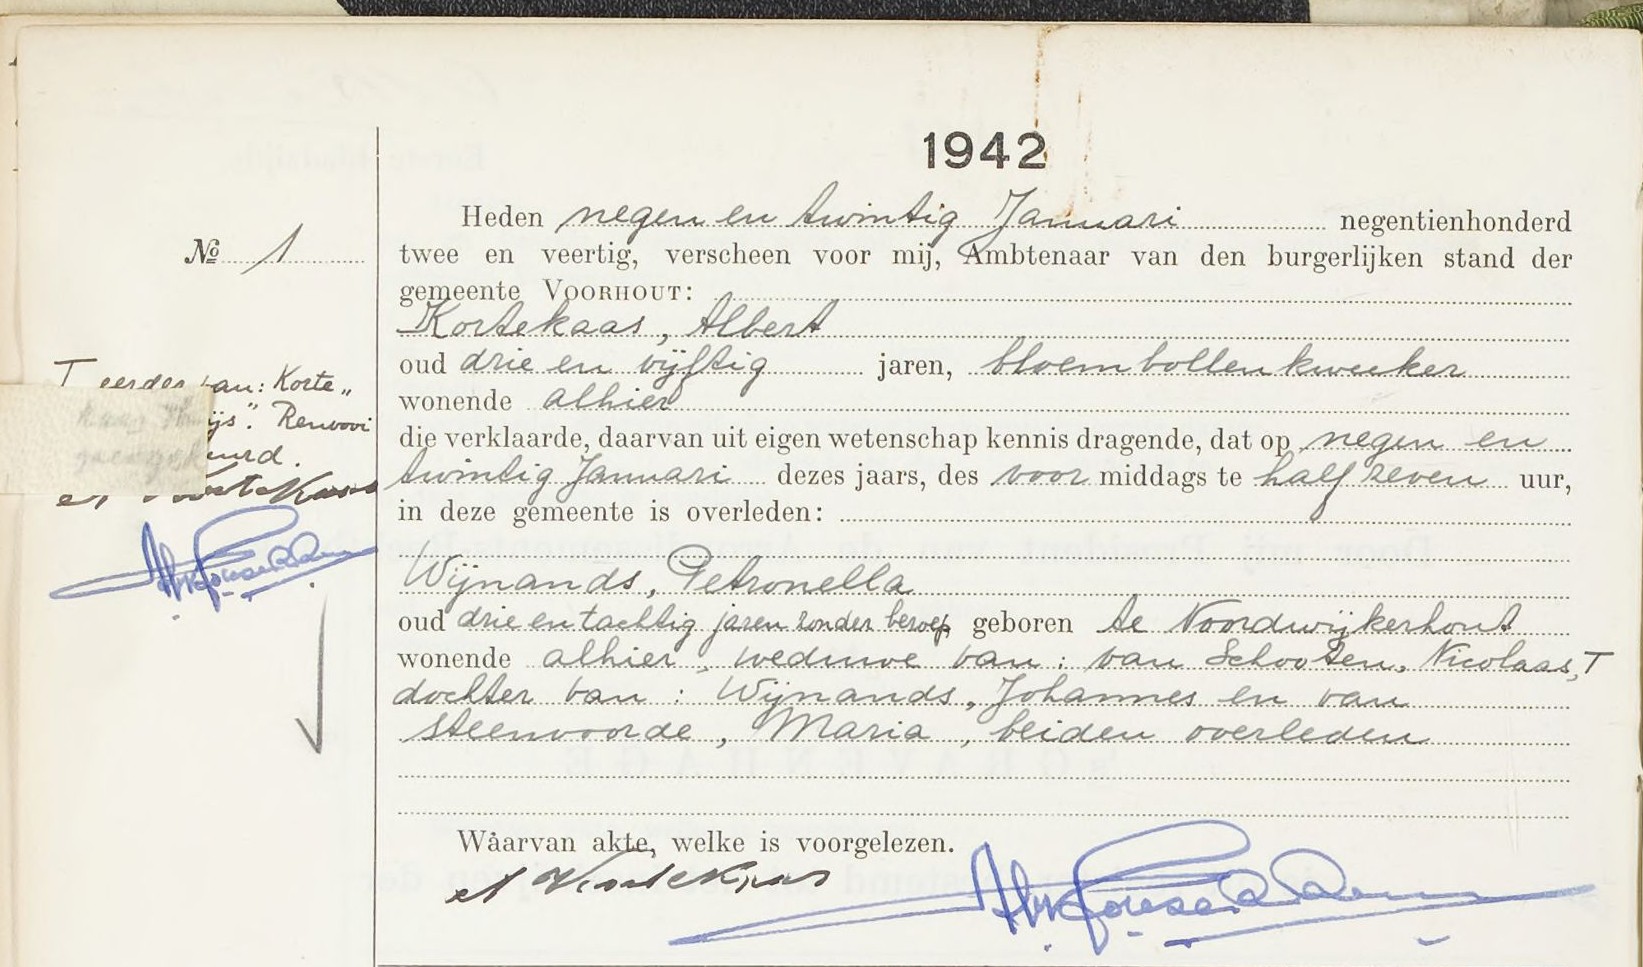 1942
Heden negen en twintig Januari negentienhonderd
No 1
twee en veertig, verscheen voor mij, Ambtenaar van den burgerlijken stand der
gemeente VOORHOUT:
Kortekaas, Albert
oud drie en vijftig jaren, bloembollenkweeker
wonende alhier
die verklaarde, daarvan uit eigen wetenschap kennis dragende, dat op negen en
twintig Januari dezes jaars, des voor middags te half zeven uur,
in deze gemeente is overleden:
Wijnands, Petronella
oud drie en tachtig jaren zonder beroep, geboren te Noordwijkerhout
wonende alhier, weduwe van: van Schooten, Nicolaas, T
dochter van: Wijnands, Johannes en van
Steenvoorde, Maria, beiden overleden
T eerder van: Korte„
ijs". Renvooi
eurd.
A Kortekaas
Waarvan akte, welke is voorgelezen.
A Kortekaas